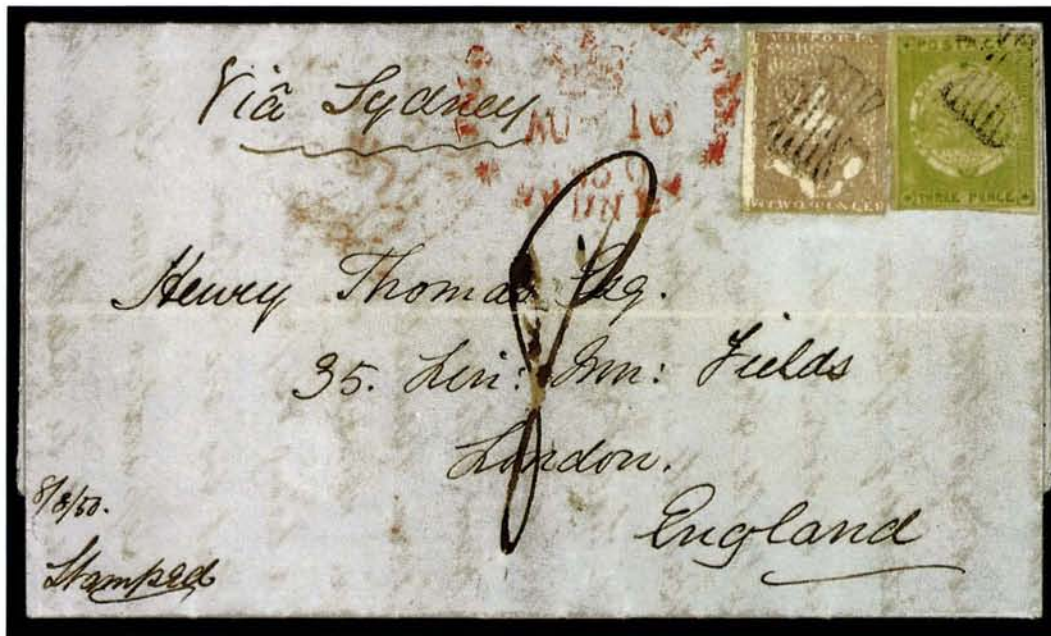 Viâ Sydney
VICTORIA
TWO PENCE
POSTAGE
THREE PENCE
AU 16
8
Henry Thomas Esq.
35. Lin: Inn: Fields
London.
England
8/8/50.
Stamped